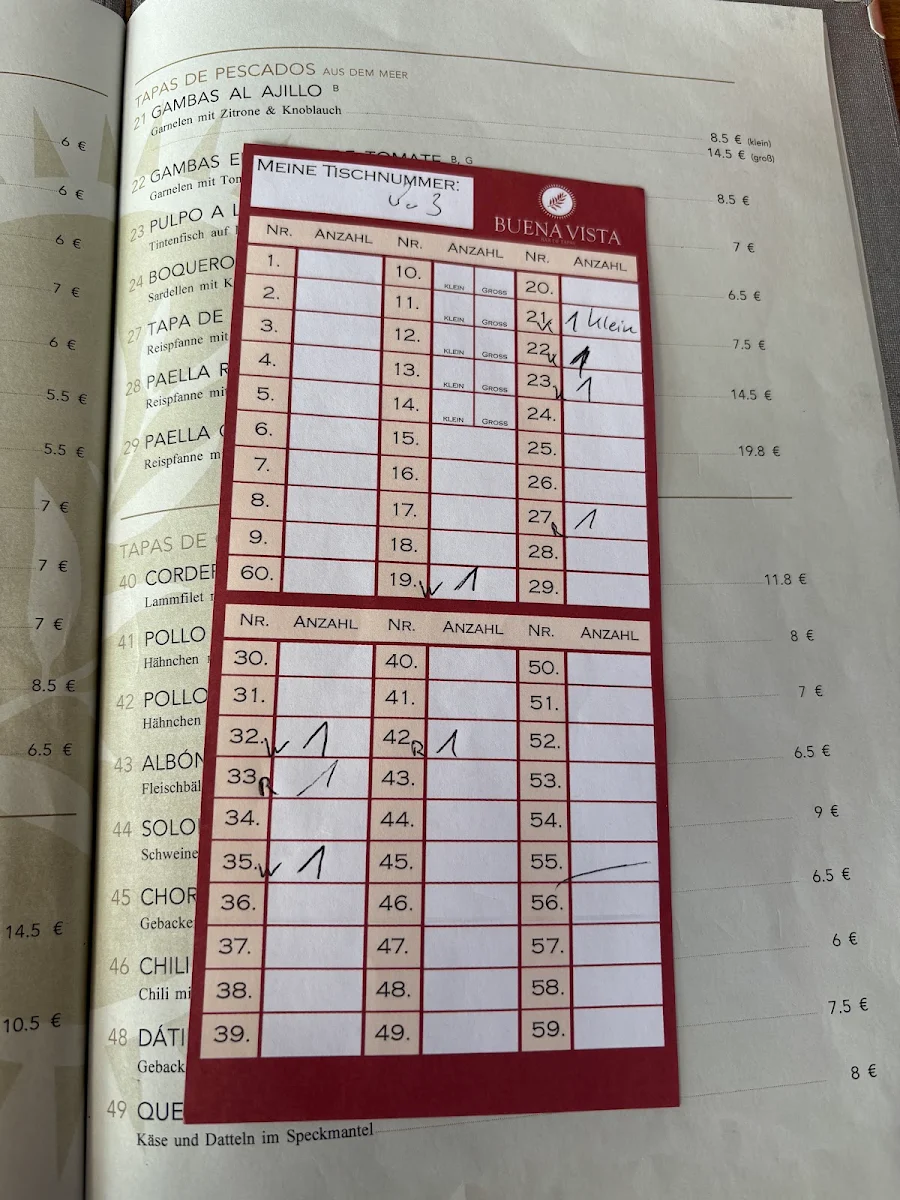 TAPAS DE PESCADOS AUS DEM MEER
21 GAMBAS AL AJILLO B
Garnelen mit Zitrone & Knoblauch
8.5 € (klein)
14.5 € (groß)
22 GAMBAS E TOMATE B, G
Garnelen mit Tom
8.5 €
23 PULPO A L
Tintenfisch auf
7 €
24 BOQUERO
Sardellen mit K
6.5 €
27 TAPA DE
Reispfanne mit
7.5 €
28 PAELLA R
Reispfanne mi
14.5 €
29 PAELLA
Reispfanne m
19.8 €
TAPAS DE
40 CORDER
Lammfilet
11.8 €
41 POLLO
Hähnchen
8 €
42 POLLO
Hähnchen
7 €
43 ALBÓN
Fleischbäl
6.5 €
44 SOLO
Schweine
9 €
45 CHOR
Gebacke
6.5 €
46 CHILI
Chili mi
6 €
48 DÁTI
Geback
7.5 €
49 QUE
Käse und Datteln im Speckmantel
8 €
6 €
6 €
6 €
7 €
6 €
5.5 €
5.5 €
7 €
7 €
7 €
8.5 €
6.5 €
14.5 €
10.5 €
MEINE TISCHNUMMER:
3
BUENA VISTA
NR. ANZAHL NR. ANZAHL NR. ANZAHL
1. 10. KLEIN GROSS 20.
2. 11. KLEIN GROSS 21. 1 klein
3. 12. KLEIN GROSS 22. 1
4. 13. KLEIN GROSS 23. 1
5. 14. KLEIN GROSS 24.
6. 15. 25.
7. 16. 26.
8. 17. 27. R 1
9. 18. 28.
60. 19. W 1 29.
NR. ANZAHL NR. ANZAHL NR. ANZAHL
30. 40. 50.
31. 41. 51.
32. W 1 42. R 1 52.
33. R 1 43. 53.
34. 44. 54.
35. W 1 45. 55.
36. 46. 56.
37. 47. 57.
38. 48. 58.
39. 49. 59.